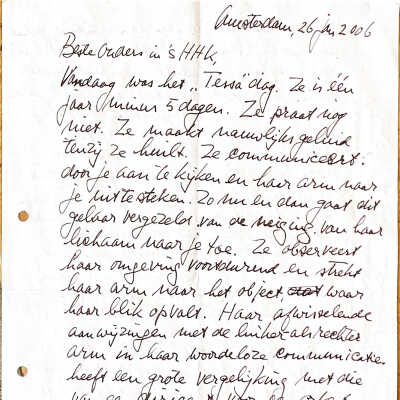 Amsterdam, 26 jan 2006
Beste Ouders in 's HHK,
Vandaag was het „Tessa" dag. Ze is één
jaar minus 5 dagen. Ze praat nog
niet. Ze maakt nauwlijks geluid
tenzij ze huilt. Ze communiceert
door je aan te kijken en haar arm naar
je uit te steken. Zo nu en dan gaat dit
gebaar vergezeld van de neiging van haar
lichaam naar je toe. Ze observeert
haar omgeving voortdurend en strekt
haar arm naar het object, waar
haar blik op valt. Haar afwisselende
aanwijzingen met de linker als rechter
arm in haar woordeloze communicatie
heeft een grote vergelijking met die
van een